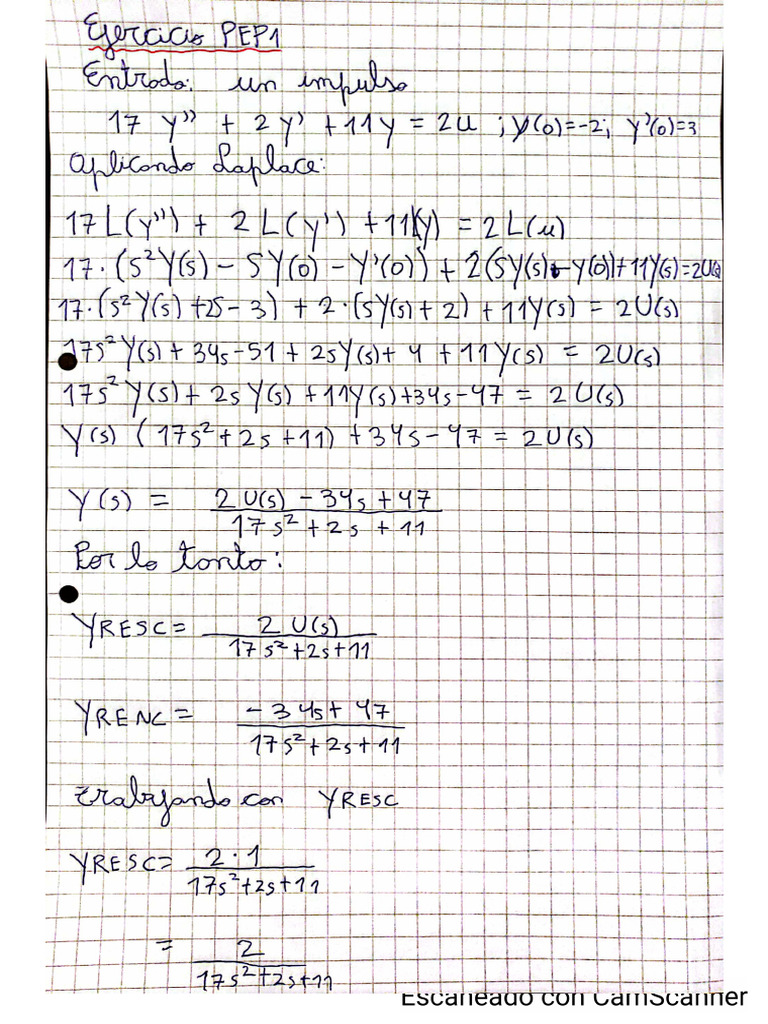 Ejercicio PEP1
Entrada: un impulso
17 y'' + 2y' + 11y = 2u ; y(0)=-2; y'(0)=3
Aplicando Laplace:
17 L(y'') + 2 L(y') + 11L(y) = 2 L(u)
17·(s²Y(s) - SY(0) - Y'(0)) + 2(SY(s) - y(0)) + 11Y(s) = 2U(s)
17·(s²Y(s) + 2S - 3) + 2·(sY(s) + 2) + 11Y(s) = 2U(s)
17s²Y(s) + 34s - 51 + 2sY(s) + 4 + 11Y(s) = 2U(s)
17s²Y(s) + 2sY(s) + 11Y(s) + 34s - 47 = 2U(s)
Y(s) (17s² + 2s + 11) + 34s - 47 = 2U(s)
Y(s) = 2U(s) - 34s + 47
17s² + 2s + 11
Por lo tanto:
YRESC = 2 U(s)
17s² + 2s + 11
YRENC = -34s + 47
17s² + 2s + 11
trabajando con YRESC
YRESC = 2·1
17s² + 2s + 11
= 2
17s² + 2s + 11
Escaneado con CamScanner